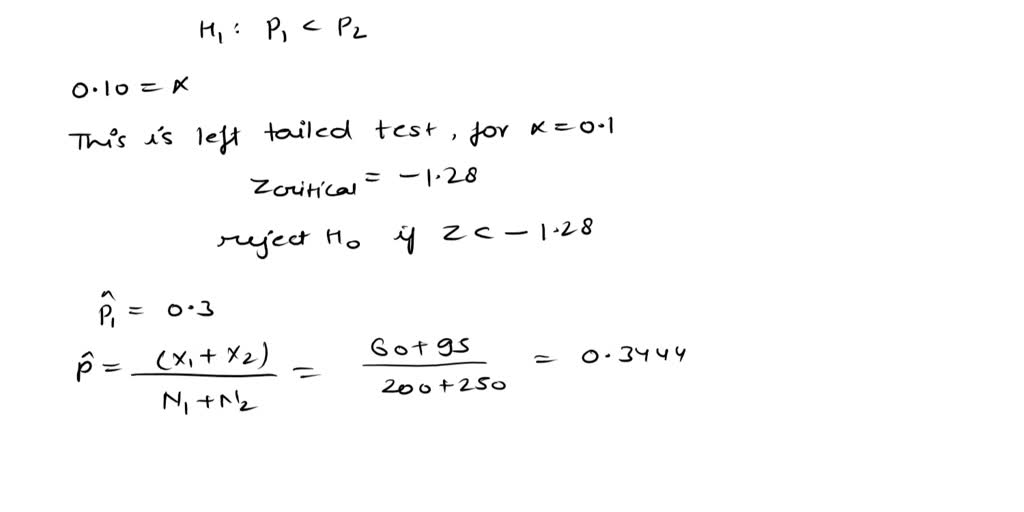 H₁ : P₁ < P₂
0.10 = α
This is left tailed test, for α = 0.1
Zcritical = -1.28
reject H₀ if Z < -1.28
p̂₁ = 0.3
p̂ = (X₁ + X₂) / N₁ + N₂ = 60 + 95 / 200 + 250 = 0.3444